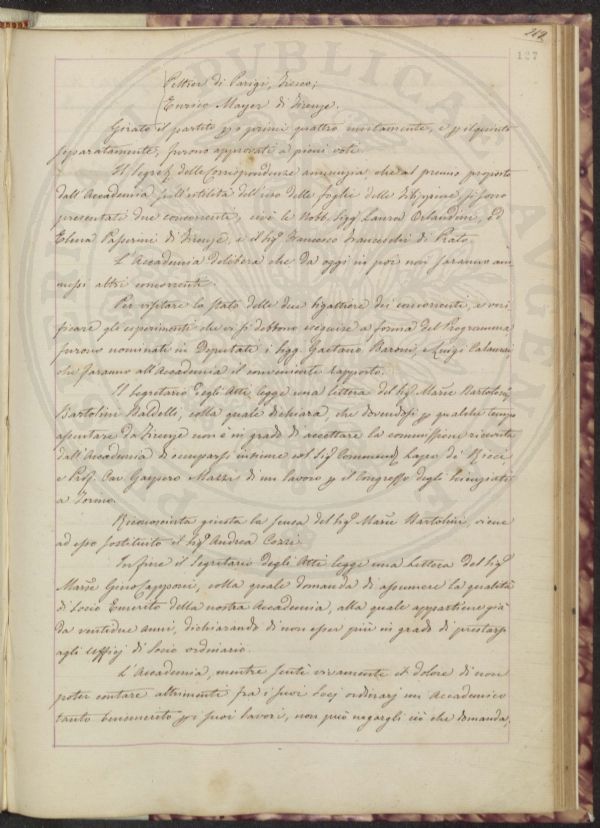 219
127
Pettier di Parigi, Socio;
Enrico Mayer di Firenze.
Girato il partito p i primi quattro unitamente, e p il quinto
separatamente, furono approvati a pieni voti.
Il Segret. delle Corrispondenze annunzia, che al premio proposto
dall'Accademia sull'utilità dell'uso delle foglie delle Filippine, si sono
presentati due concorrenti, cioè le Nobb. Sigg. Laura Orlandini, ed
Elena Passerini di Firenze, e il Sig. Francesco Franceschi di Prato.
L'Accademia delibera che da oggi in poi non saranno am-
messi altri concorrenti.
Per visitare lo stato delle due bigattiere dei concorrenti, e veri-
ficare gli esperimenti che vi si debbono eseguire a forma del Programma
furono nominati in Deputati i Sigg. Gaetano Baroni, e Luigi Calamai
che faranno all'Accademia il conveniente rapporto.
Il Segretario degli Atti legge una lettera del Sig. March. Bartolom.
Bartolini Baldelli, colla quale dichiara, che dovendosi p qualche tempo
assentare da Firenze non è in grado di accettare la commissione ricevuta
dall'Accademia di occuparsi insieme col Sig. Commend. Lapo de' Ricci
e Prof. Cav. Gaspero Mazzi di un lavoro p il Congresso degli Scienziati
a Torino.
Riconosciuta giusta la scusa del Sig. March. Bartolini, viene
ad esso sostituito il Sig. Andrea Cozzi.
In fine il Segretario degli Atti legge una Lettera del Sig.
March. Gino Capponi, colla quale domanda di assumere la qualità
di Socio Emerito della nostra Accademia, alla quale appartiene già
da ventidue anni, dichiarando di non esser più in grado di prestarsi
agli Ufficj di Socio ordinario.
L'Accademia, mentre sente vivamente il dolore di non
poter contare altrimenti fra i suoi Socj ordinarj un Accademico
tanto benemerito p i suoi lavori, non può negargli ciò che domanda,